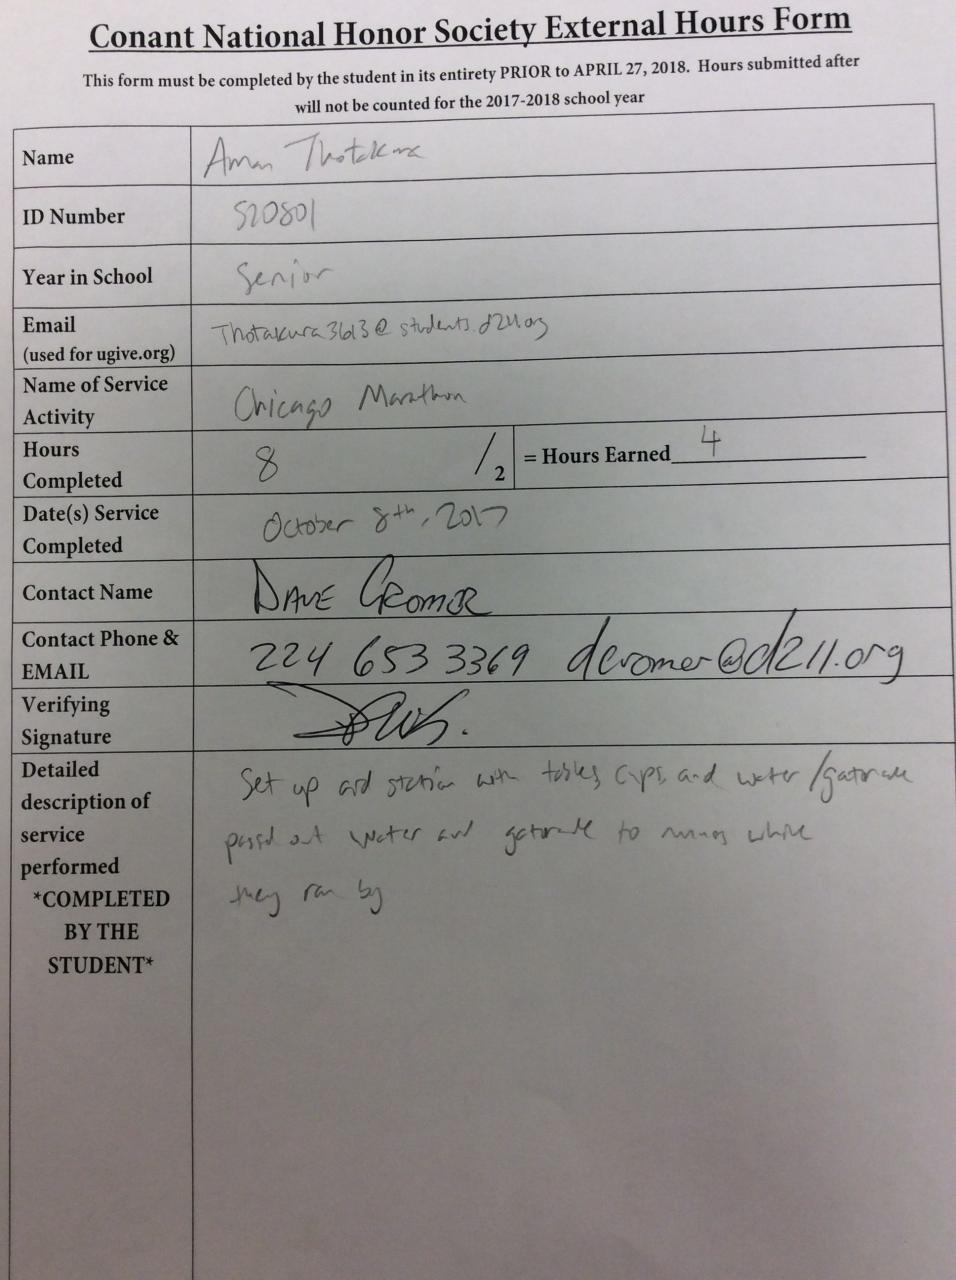 Conant National Honor Society External Hours Form
This form must be completed by the student in its entirety PRIOR to APRIL 27, 2018. Hours submitted after
will not be counted for the 2017-2018 school year
Name Aman Thotakura
ID Number 520801
Year in School Senior
Email
(used for ugive.org) Thotakura3613@students.d211.org
Name of Service
Activity Chicago Marathon
Hours
Completed 8 /2 = Hours Earned 4
Date(s) Service
Completed October 8th, 2017
Contact Name DAVE CROMER
Contact Phone &
EMAIL 224 653 3369 dcromer@d211.org
Verifying
Signature
Detailed
description of
service
performed
*COMPLETED
BY THE
STUDENT*
Set up aid station with tables, cups, and water/gatorade
passed out water and gatorade to runners while
they ran by